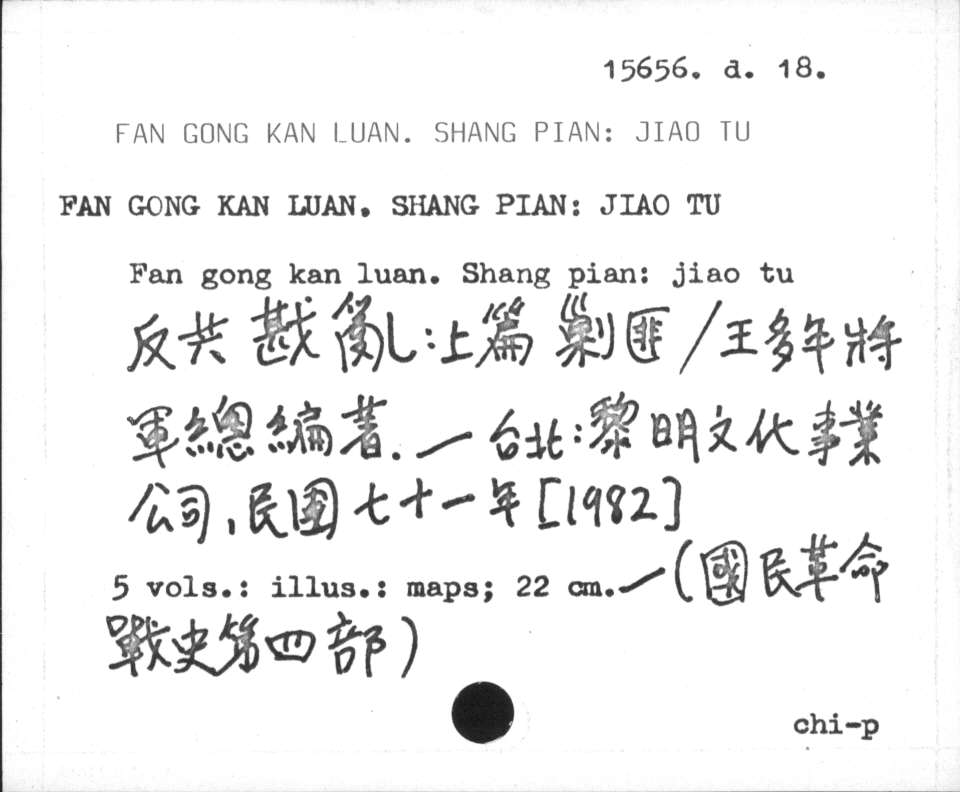 15656. d. 18.
FAN GONG KAN LUAN. SHANG PIAN: JIAO TU
FAN GONG KAN LUAN. SHANG PIAN: JIAO TU
Fan gong kan luan. Shang pian: jiao tu
反共戡亂:上篇 剿匪/王多年將
軍總編著.—台北:黎明文化事業
公司,民國七十一年[1982]
5 vols.: illus.: maps; 22 cm.—(國民革命
戰史第四部)
chi-p